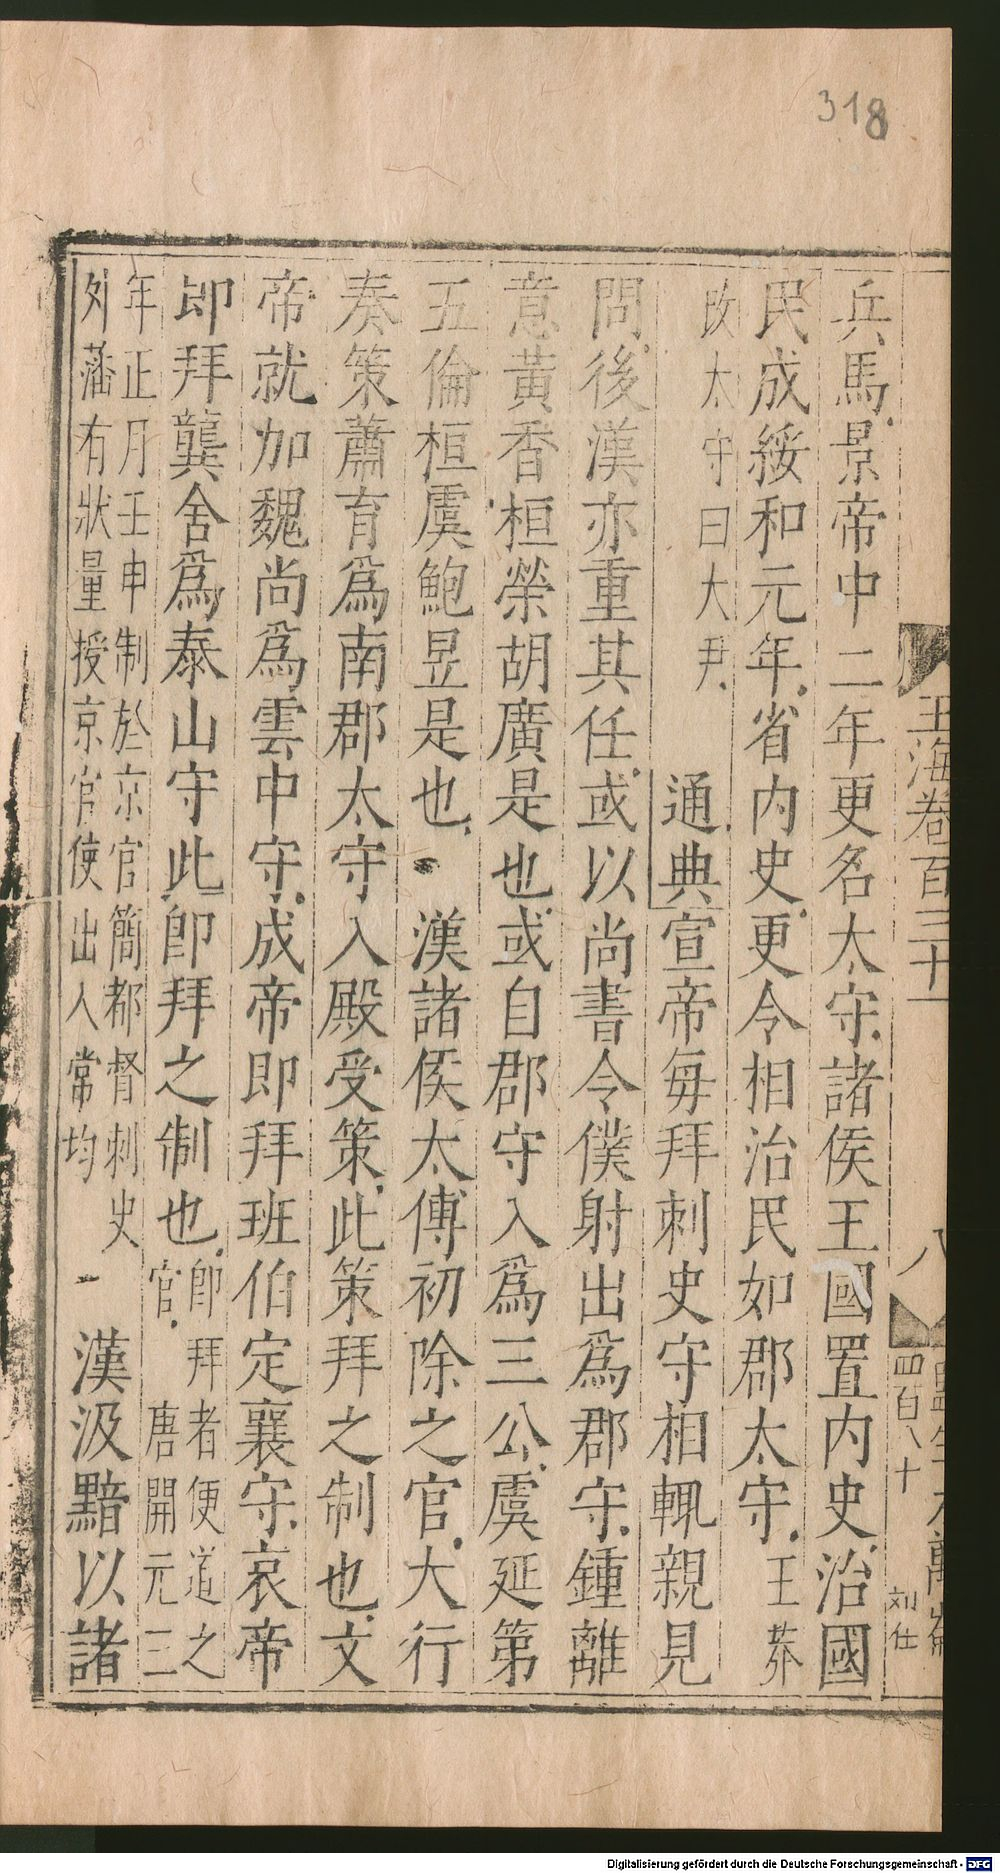 318
兵馬景帝中二年更名太守諸侯王國置内史治國
民成綏和元年省内史更令相治民如郡太守王莽
改太守曰大尹 通典宣帝每拜刺史守相輒親見
問後漢亦重其任或以尚書令僕射出爲郡守鍾離
意黃香桓榮胡廣是也或自郡守入爲三公虞延第
五倫桓虞鮑昱是也 漢諸侯太傅初除之官大行
奏策蕭育爲南郡太守入殿受策此策拜之制也文
帝就加魏尚爲雲中守成帝即拜班伯定襄守哀帝
即拜龔舍爲泰山守此卽拜之制也卽拜者便道之
官 唐開元三
年正月壬申制於京官簡都督刺史
外藩有狀量授京官使出入常均
漢汲黯以諸
玉海卷百三十一
八
四百八十
刘仕
Digitalisierung gefördert durch die Deutsche Forschungsgemeinschaft - DFG